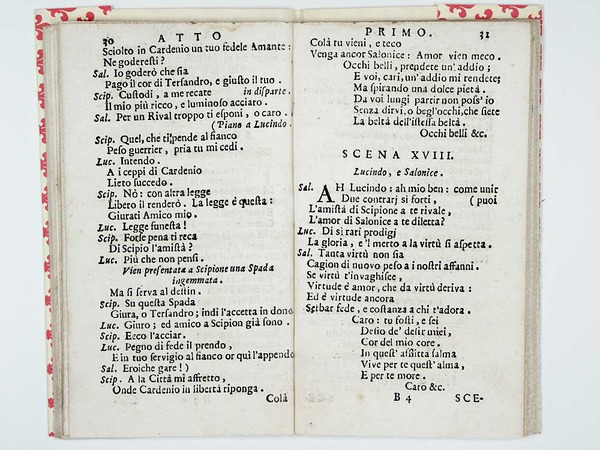 30 ATTO
Sciolto in Cardenio un tuo fedele Amante:
Ne goderesti?
Sal. Io goderò che sia
Pago il cor di Tersandro, e giusto il tuo.
Scip. Custodi, a me recate in disparte.
Il mio più ricco, e luminoso acciaro.
Sal. Per un Rival troppo ti esponi, o caro.
(Piano a Lucindo.
Scip. Quel, che ti pende al fianco
Peso guerrier, pria tu mi cedi.
Luc. Intendo.
A i ceppi di Cardenio
Lieto succedo.
Scip. Nò: con altra legge
Libero il renderò. La legge è questa:
Giurati Amico mio.
Luc. Legge funesta!
Scip. Forse pena ti reca
Di Scipio l'amistà?
Luc. Più che non pensi.
Vien presentata a Scipione una Spada
ingemmata.
Ma si serva al destin.
Scip. Su questa Spada
Giura, o Tersandro; indi l'accetta in dono
Luc. Giuro; ed amico a Scipion già sono.
Scip. Ecco l'acciar.
Luc. Pegno di fede il prendo,
E in tuo servigio al fianco or qui l'appendo
Sal. Eroiche gare!)
Scip. A la Città mi affretto,
Onde Cardenio in libertà riponga.
Colà
PRIMO. 31
Colà tu vieni, e teco
Venga ancor Salonice: Amor vien meco.
Occhi belli, prendete un' addio;
E voi, cari, un' addio mi rendete;
Ma spirando una dolce pietà.
Da voi lungi partir non poss' io
Senza dirvi, o begl'occhi, che siete
La beltà dell'istessa beltà.
Occhi belli &c.
SCENA XVIII.
Lucindo, e Salonice.
Sal. AH Lucindo: ah mio ben: come unir
Due contrarj si forti, (puoi
L'amistà di Scipione a te rivale,
L'amor di Salonice a te diletta?
Luc. Di sì rati prodigj
La gloria, e'l merto a la virtù si aspetta.
Sal. Tanta virtù non sia
Cagion di nuovo peso a i nostri affanni.
Se virtù t'invaghisce,
Virtude è amor, che da virtù deriva:
Ed è virtude ancora
Serbar fede, e costanza a chi t'adora.
Caro: tu fosti, e sei
Desio de' desir miei,
Cor del mio core.
In quest' afflitta salma
Vive per te quest' alma,
E per te more.
Caro &c.
B 4 SCE-